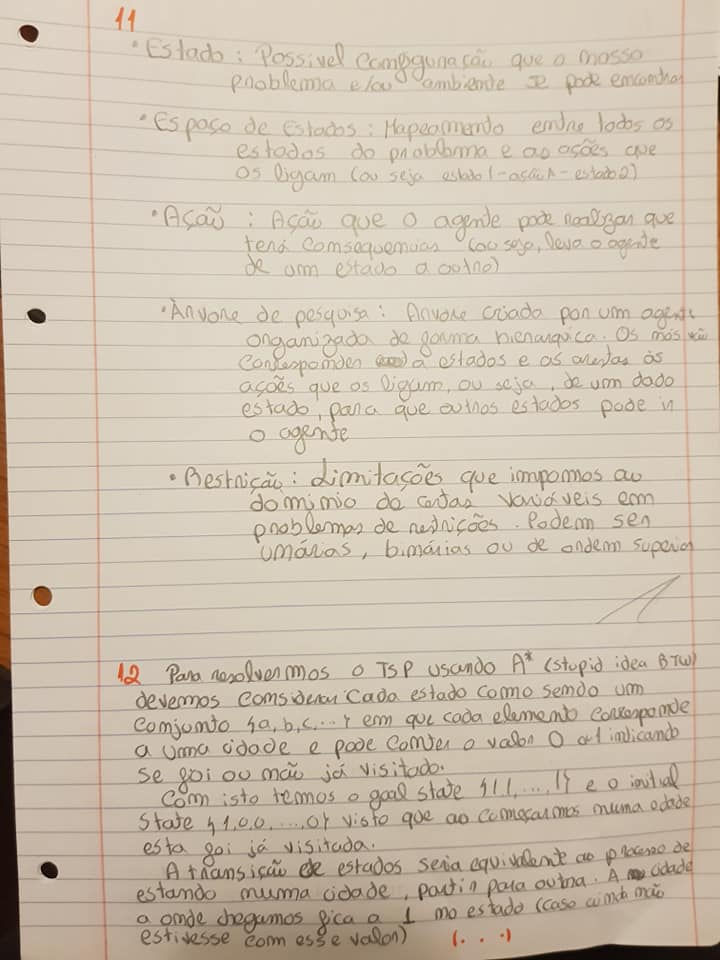 11
• Estado : Possivel configuração que o nosso
problema e/ou ambiente se pode encontrar
• Espaço de Estados : Mapeamento entre todos os
estados do problema e as ações que
os ligam (ou seja estado 1 - ação A - estado 2)
• Ação : Ação que o agente pode realizar que
terá consequencias (ou seja, leva o agente
de um estado a outro)
• Árvore de pesquisa : Arvore criada por um agente
organizada de forma hierarquica. Os nós vão
corresponder a estados e as arestas às
ações que os ligam, ou seja, de um dado
estado, para que outros estados pode ir
o agente
• Restrição : Limitações que impomos ao
dominio de certas variáveis em
problemas de restrições. Podem ser
unárias, binárias ou de ordem superior
12 Para resolvermos o TSP usando A* (stupid idea BTW)
devemos considerar cada estado como sendo um
conjunto {a, b, c, ...} em que cada elemento corresponde
a uma cidade e pode conter o valor 0 ou 1 indicando
se foi ou não já visitado.
Com isto temos o goal state {1 1, ..., 1} e o initial
state {1,0,0, ..., 0} visto que ao começarmos numa cidade
esta foi já visitada.
A transição de estados seria equivalente ao processo de
estando numa cidade, partir para outra. A cidade
a onde chegamos fica a 1 no estado (caso ainda não
estivesse com esse valor) (...)